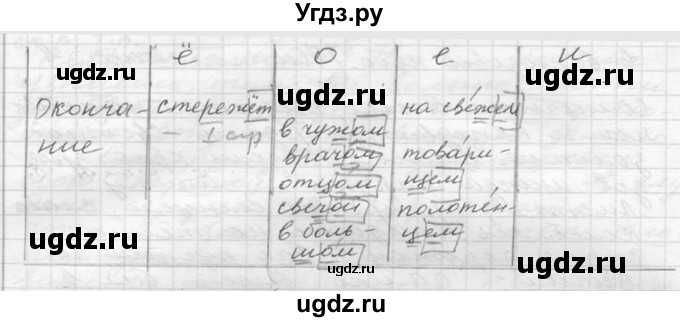 Угдз.ру
ё о е и
Оконча-
ние
стережёт
– I спр
в чужом
врачом
отцом
свечой
в боль-
шом
на свежем
товари-
щем
полотен-
цем
ugdz.ru
ugdz.ru
ugdz.ru
ugdz.ru
ugdz.ru
ugdz.ru
ugdz.ru
ugdz.ru